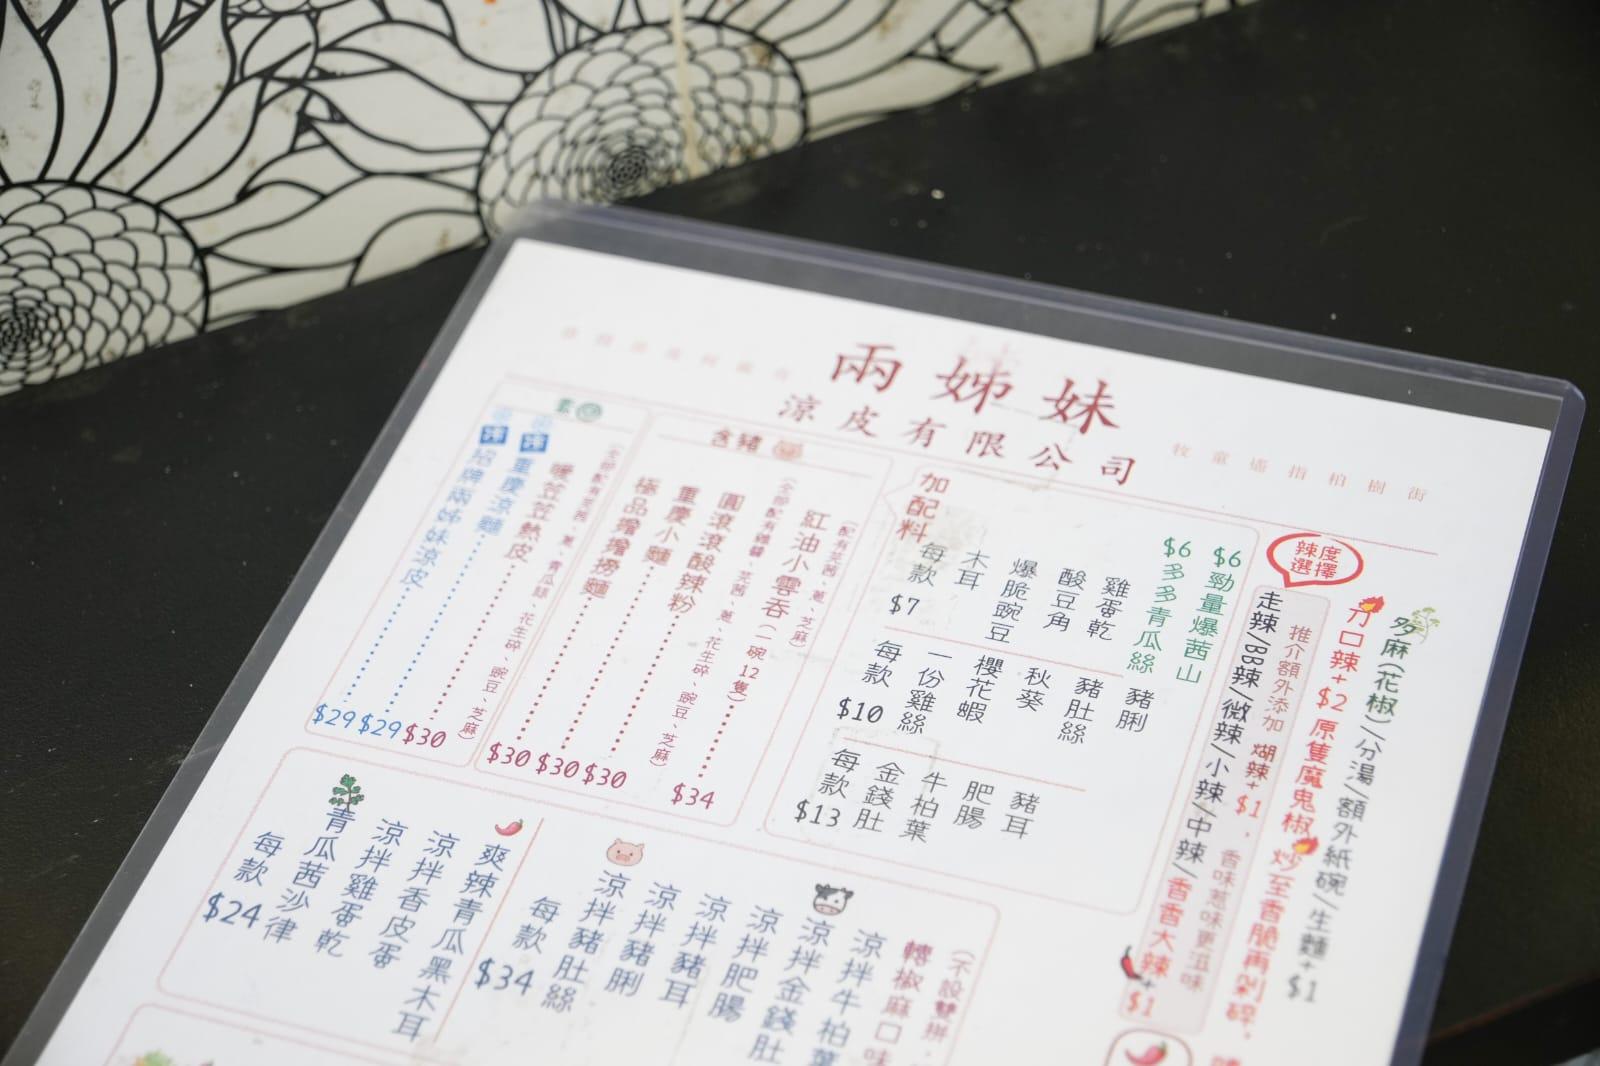 兩姊妹
涼皮有限公司
牧童遙指柏樹街
辣度選擇
多麻(花椒)/分湯/額外紙碗/生麵+$1
刀口辣+$2 原隻魔鬼椒炒至香脆再剁碎，
推介額外添加 煳辣+$1，香味惹味更滋味
走辣/BB辣/微辣/小辣/中辣/香香大辣+$1
加配料
$6 勁量爆茜山
$6 多多青瓜絲
雞蛋乾
酸豆角
爆脆豌豆
木耳
每款 $7
豬脷
豬肚絲
秋葵
櫻花蝦
一份雞絲
每款 $10
豬耳
肥腸
牛柏葉
金錢肚
每款 $13
含豬
(配有芫茜、蔥、芝麻)
紅油小雲吞(一碗12隻) $34
(全部配有雜醬、芫茜、蔥、花生碎、豌豆、芝麻)
圓滾滾酸辣粉 $30
重慶小麵 $30
極品擔擔撈麵 $30
素
(全部配有芫茜、蔥、青瓜絲、花生碎、豌豆、芝麻)
暖笠笠熱皮 $30
凍 重慶涼麵 $29
凍 招牌兩姊妹涼皮 $29
(不設雙拼，
轉椒麻口味
涼拌牛柏葉
涼拌金錢肚
涼拌肥腸
涼拌豬耳
涼拌豬脷
涼拌豬肚絲
每款 $34
爽辣青瓜黑木耳
涼拌香皮蛋
涼拌雞蛋乾
青瓜茜沙律
每款 $24